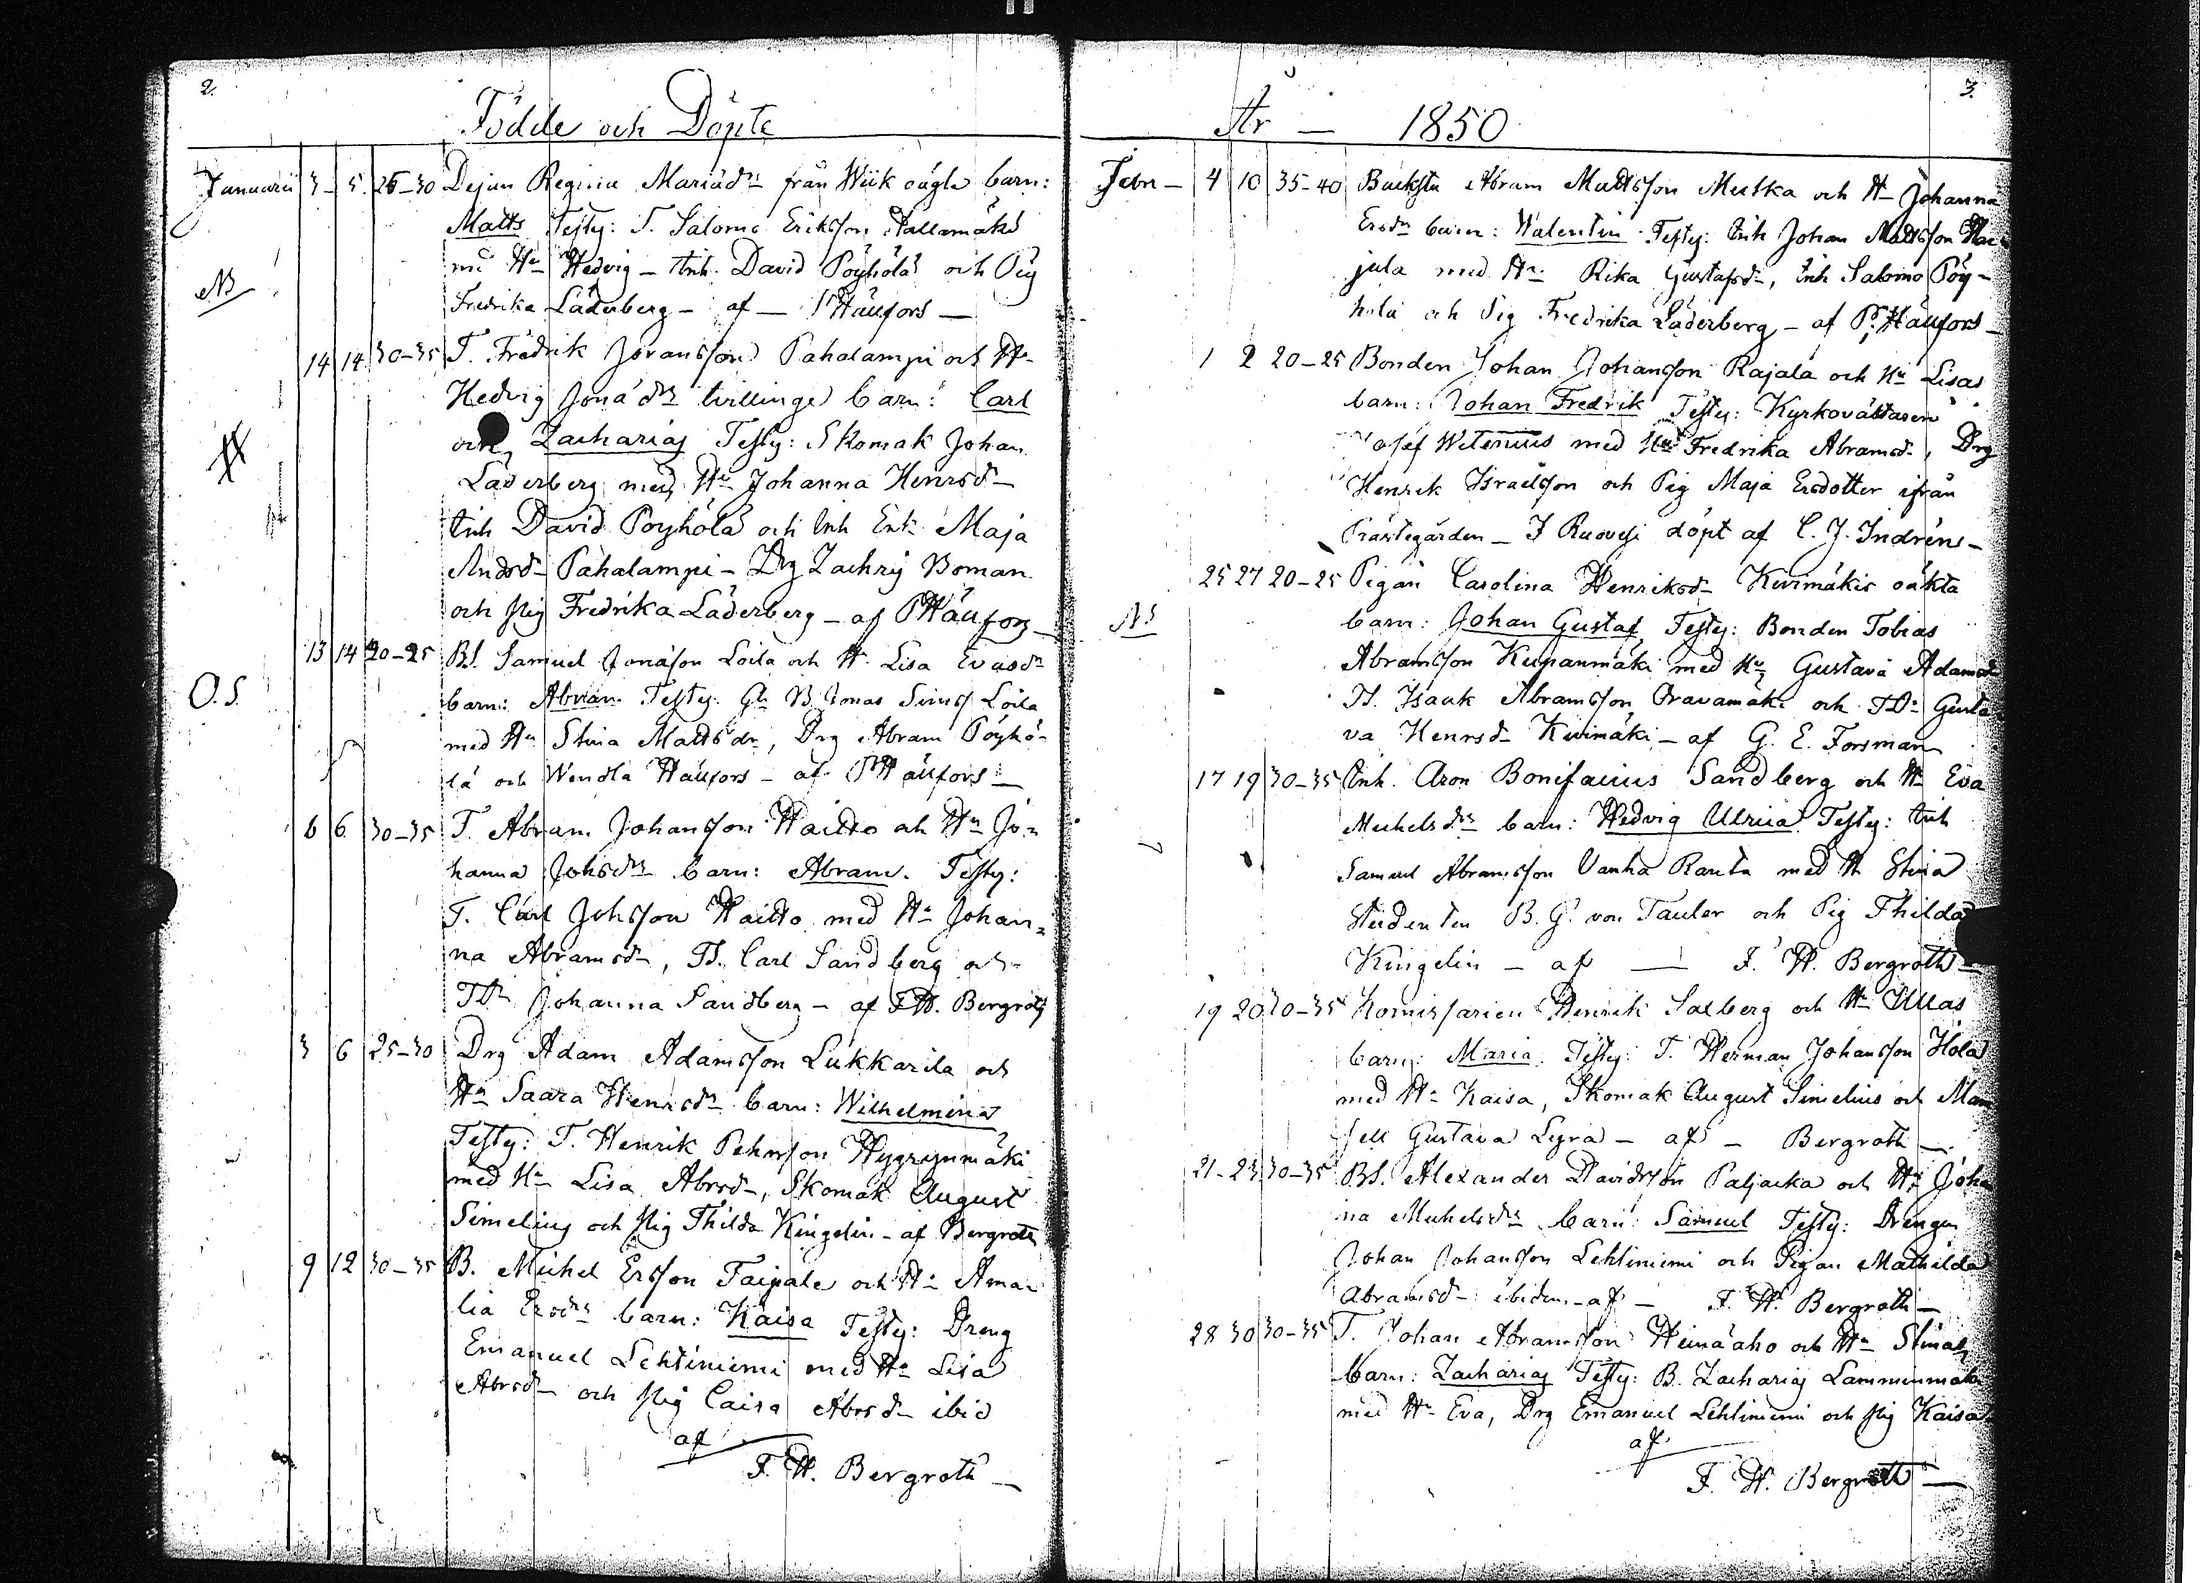 2.
Födde och Döpte
Januarii 3 5 25-30 Dejan Regina Mariædr från Wiik oägta barn:
Matts Testes: T. Salomo Eriksson Hallamäki
NB
med Hu Hedvig - Inh. David Pöyhölä och Pig
Fredrika Läderberg - af - P Häufors -
14 14 30-35 T. Fredrik Joransson Pahalampi och Hu
Hedvig Jonædr tvillinge barn: Carl
och Zacharias Testes: Skomak Johan
Läderberg med Hu Johanna Henrsd-
Inh David Pöyhölä och Inh Enk: Maja
Andsd- Pahalampi - Drg Zachris Boman
och Pig Fredrika Läderberg - af P Häufors -
13 14 20-25 BS. Samuel Jonasson Loila och H. Lisa Evasdr
O.S.
barn: Abram Testes: Gl. B. Jonas Simss Loila
med Hu Stina Mattsdr, Drg Abram Pöyhö-
lä och Wendla Häufors - af P Häufors -
6 6 30-35 T. Abram Johansson Haitto och Hu Jo-
hanna Johsdr barn: Abram. Testes:
T. Carl Johsson Haitto med Hu Johan-
na Abramsd-, TS. Carl Sandberg och
TDr Johanna Sandberg - af F.H. Bergroth
3 6 25-30 Drg Adam Adamsson Lukkarila och
Hu Saara Henrsdr barn: Wilhelmina
Testes: T. Henrik Pehrsson Hyyrynmäki
med Hu Lisa Abrsd-, Skomak August
Simelius och Pig Thilda Kingelin - af Bergroth
9 12 30-35 B. Michel Ersson Taipale och Hu Ama-
lia Ersdr barn: Kaisa Testes: Dreng
Emanuel Lehtiniemi med Hu Lisa
Abrsd- och Pig Caisa Abrsd- ibid
af
F. H. Bergroth -
3.
År - 1850
Febr - 4 10 35-40 Backstu Abram Mattsson Mutka och Hu Johanna
Ersdr barn: Walentin Testes: Inh Johan Mattsson
jula med Hu Rika Gustafsd-, Inh Salomo Pöy-
hölä och Pig Fredrika Läderberg - af P. Häufors -
1 2 20-25 Bonden Johan Johansson Rajala och Hu Lisas
barn: Johan Fredrik Testes: Kyrkovästaren
Josef Witenius med Hu Fredrika Abramsd-, Drg
Henrik Israelsson och Pig Maja Ersdotter ifrån
Prästegården - I Ruovesi döpt af C. J. Indrenius -
25 27 20-25 Pigan Carolina Henriksd- Kivimäkis oäkta
NB
barn: Johan Gustaf, Testes: Bonden Tobias
Abramsson Keipanmäki med Hu Gustava Adamsd
TS. Isack Abramsson Oravamäki och TDr Gusta-
va Henrsd- Kivimäki - af G. E. Forsman
17 19 30-35 Inh. Aron Bonifacius Sandberg och Hu Eva
Michelsdr barn: Hedvig Ulrica Testes: Inh
Samuel Abramsson Vanha Ranta med H Stina
Studenten B. G. von Tauler och Pig Thilda
Kingelin - af - F. H. Bergroth -
19 20 30-35 Komissarien Henrik Salberg och Hu Ullas
barn: Maria. Testes: T. Herman Johansson Hölä
med Hu Kaisa, Skomak August Simelius och Mam
sell Gustava Lyra - af - Bergroth -
21-23 30-35 BS. Alexander Davidsson Paljacka och Hu Joha
na Michelsdr barn: Samuel Testes: Drengen
Johan Johansson Lehtiniemi och Pigan Mathilda
Abramsd- ibidem - af - F. H. Bergroth -
28 30 30-35 T. Johan Abramsson Heinäaho och Hu Stinas
barn: Zacharias Testes: B. Zacharias Lamminmäki
med Hu Eva, Drg Emanuel Lehtiniemi och Pig Kaisa
af
F. H. Bergroth -